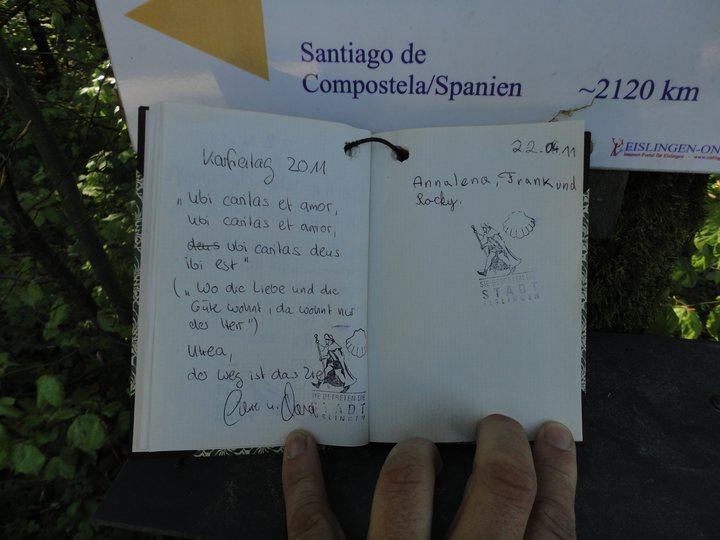 Santiago de
Compostela/Spanien ~2120 km
EISLINGEN-ON
Internet-Portal für Eislingen
Karfreitag 2011
„ Ubi caritas et amor,
ubi caritas et amor,
deus ubi caritas deus
ibi est"
(„ Wo die Liebe und die
Güte wohnt, da wohnt nur
der Herr")
Ultrea,
der Weg ist das
SIE BETRETEN DIE
STADT
EISLINGEN
22.04.11
Annalena, Frank und
Rocky.
SIE BETRETEN DIE
STADT
EISLINGEN